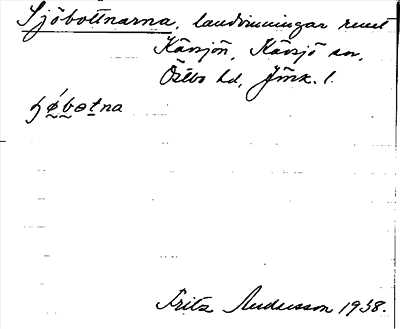 Sjöbottnarna, landvinningar runt
Kävsjön, Kävsjö sn,
Östbo hd, Jönk. l.
ɧǿbotna
Fritz Andersson 1938.